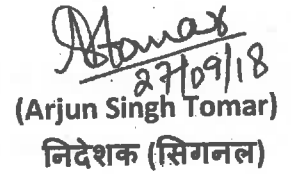 AStomar
27/09/18
(Arjun Singh Tomar)
निदेशक (सिगनल)